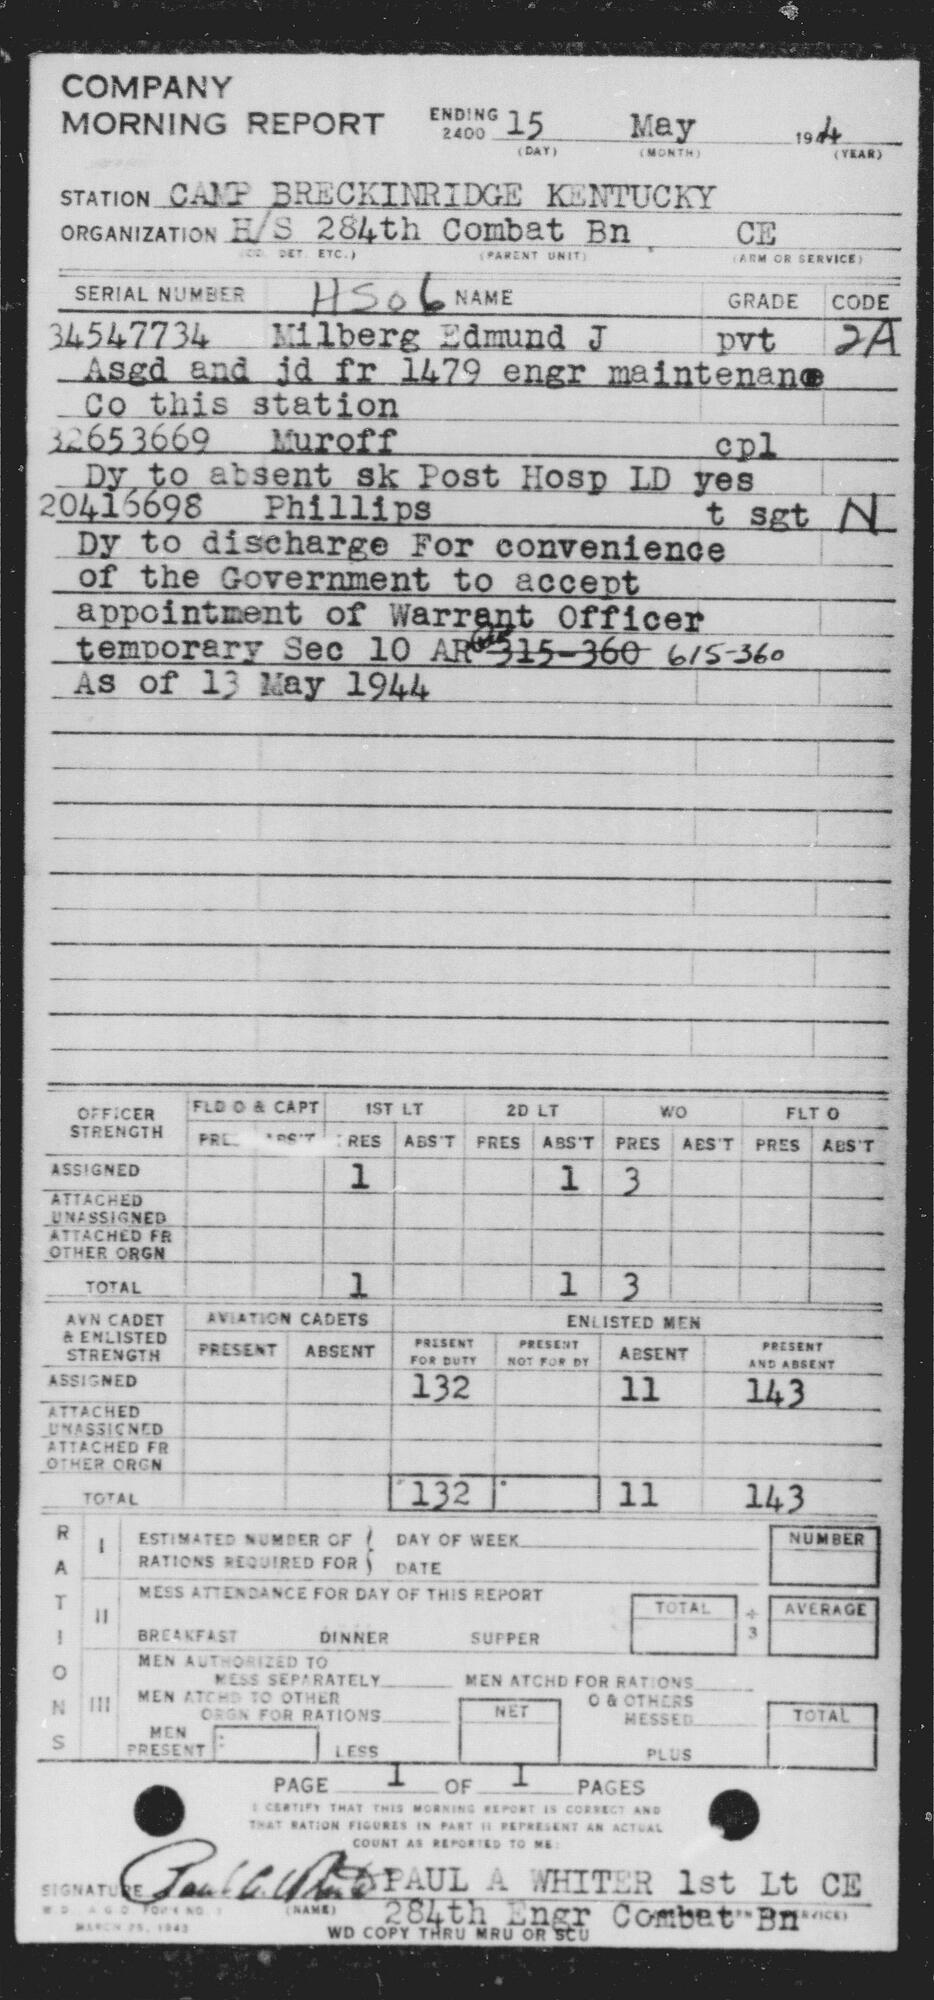 COMPANY
MORNING REPORT ENDING 2400 15 May 1944
(DAY) (MONTH) (YEAR)
STATION CAMP BRECKINRIDGE KENTUCKY
ORGANIZATION H/S 284th Combat Bn CE
(CO. DET. ETC.) (PARENT UNIT) (ARM OR SERVICE)
SERIAL NUMBER HS06 NAME GRADE CODE
34547734 Milberg Edmund J pvt 2A
Asgd and jd fr 1479 engr maintenance
Co this station
32653669 Muroff cpl
Dy to absent sk Post Hosp LD yes
20416698 Phillips t sgt N
Dy to discharge For convenience
of the Government to accept
appointment of Warrant Officer
temporary Sec 10 AR 315-360 615-360
As of 13 May 1944
OFFICER STRENGTH FLD O & CAPT 1ST LT 2D LT WO FLT O
PRES ABS'T PRES ABS'T PRES ABS'T PRES ABS'T
ASSIGNED 1 1 3
ATTACHED
UNASSIGNED
ATTACHED FR
OTHER ORGN
TOTAL 1 1 3
AVN CADET & ENLISTED STRENGTH AVIATION CADETS ENLISTED MEN
PRESENT ABSENT PRESENT FOR DUTY PRESENT NOT FOR DY ABSENT PRESENT AND ABSENT
ASSIGNED 132 11 143
ATTACHED
UNASSIGNED
ATTACHED FR
OTHER ORGN
TOTAL 132 11 143
RATIONS
I ESTIMATED NUMBER OF DAY OF WEEK NUMBER
RATIONS REQUIRED FOR DATE
II MESS ATTENDANCE FOR DAY OF THIS REPORT
TOTAL ÷ 3 AVERAGE
BREAKFAST DINNER SUPPER
III MEN AUTHORIZED TO
MESS SEPARATELY MEN ATCHD FOR RATIONS
MEN ATCHD TO OTHER O & OTHERS
ORGN FOR RATIONS NET MESSED TOTAL
MEN
PRESENT LESS PLUS
PAGE 1 OF 1 PAGES
I CERTIFY THAT THIS MORNING REPORT IS CORRECT AND
THAT RATION FIGURES IN PART II REPRESENT AN ACTUAL
COUNT AS REPORTED TO ME:
SIGNATURE Paul A. Whiter PAUL A WHITER 1st Lt CE
W. D. A. G. O. FORM NO. 1 (NAME) 284th Engr Combat Bn SERVICE)
MARCH 25, 1943 WD COPY THRU MRU OR SCU